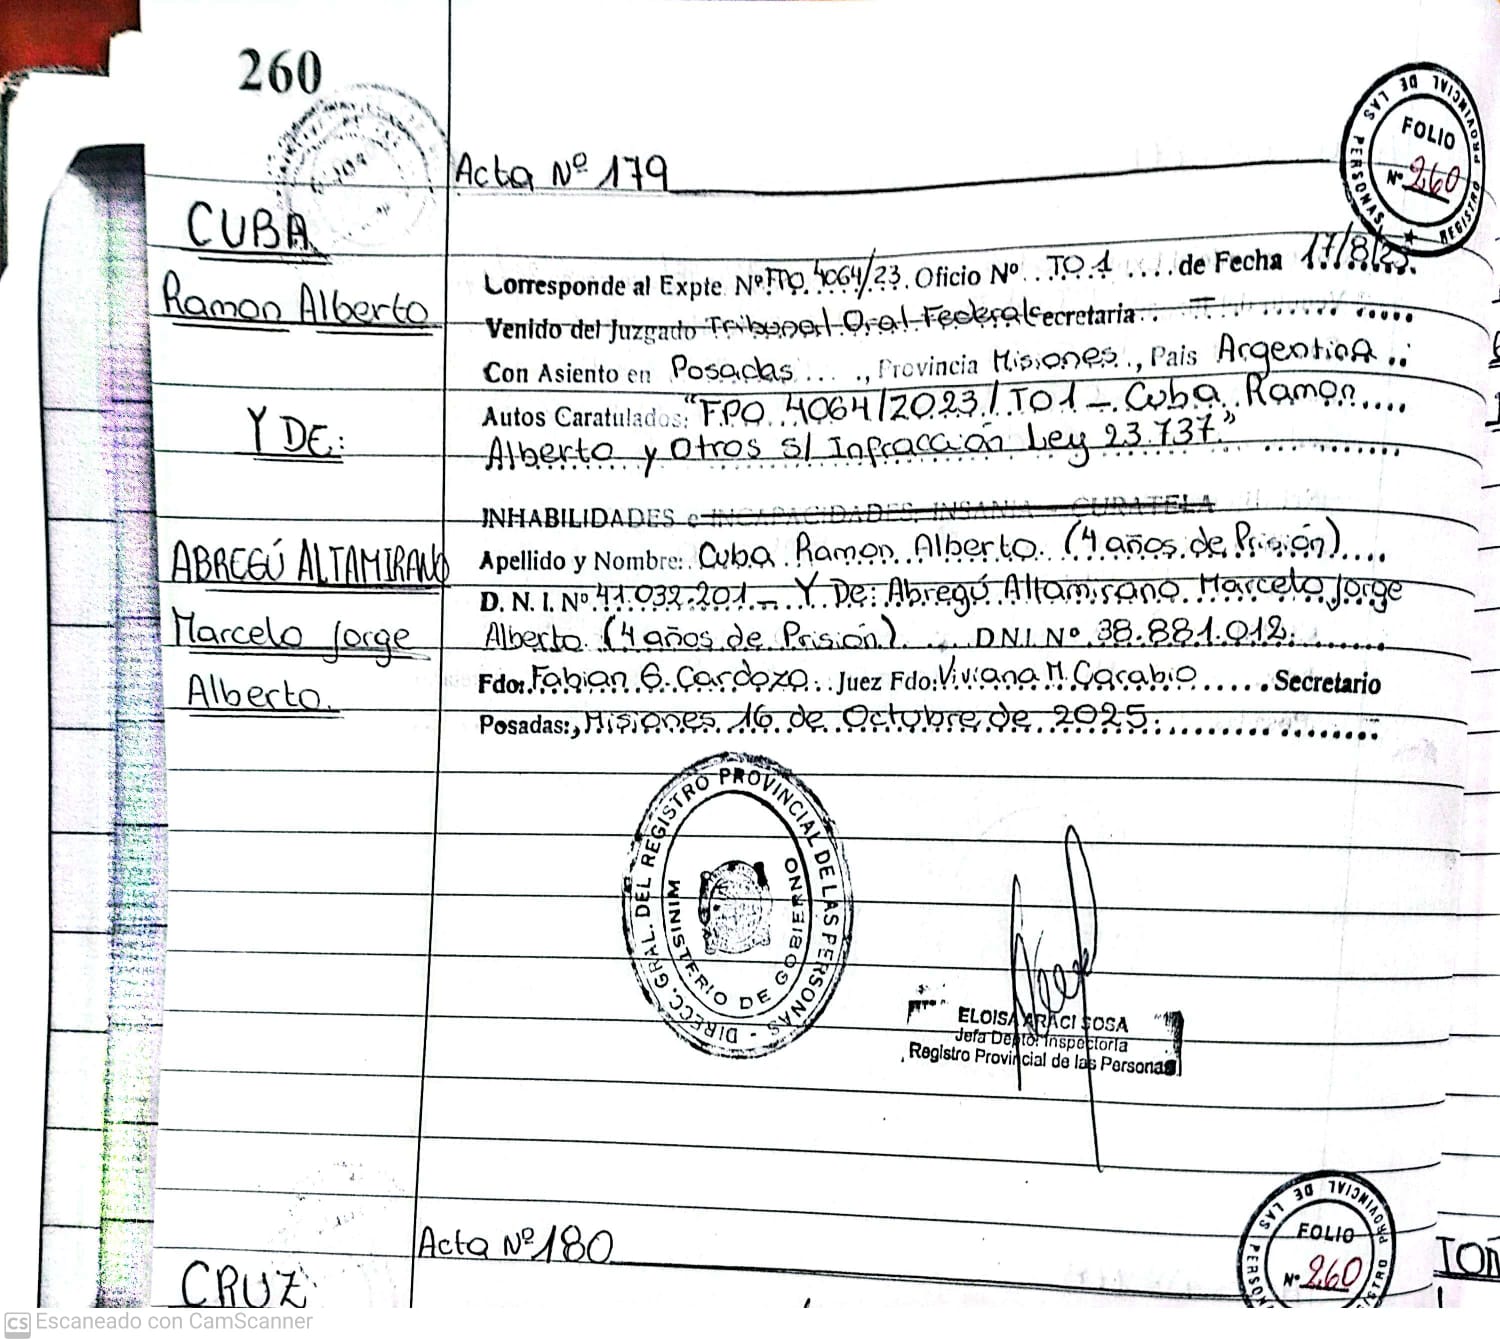 260
Acta Nº 179
REGISTRO PROVINCIAL DE LAS PERSONAS
FOLIO
Nº 260
CUBA
Ramon Alberto
Y DE:
ABREGÚ ALTAMIRANO
Marcelo Jorge
Alberto.
Corresponde al Expte. Nº FPO 4064/23. Oficio Nº TO1 de Fecha 17/8/25.
Venido del Juzgado Tribunal Oral Federal Secretaria
Con Asiento en Posadas, Provincia Misiones, Pais Argentina
Autos Caratulados: "FPO 4064/2023/TO1 - Cuba Ramon
Alberto y Otros s/ Infracción Ley 23.737."
INHABILIDADES e INCAPACIDADES, INSANIA - CURATELA
Apellido y Nombre: Cuba Ramon Alberto. (4 años de Prisión)
D. N. I. Nº 41.032.201 - Y De: Abregú Altamirano Marcelo Jorge
Alberto. (4 años de Prisión) DNI Nº 38.881.012.
Fdo: Fabian G. Cardozo. Juez Fdo: Viviana M. Carabio Secretario
Posadas:, Misiones 16 de Octubre de 2025.
DIRECC. GRAL. DEL REGISTRO PROVINCIAL DE LAS PERSONAS -
MINISTERIO DE GOBIERNO
ELOISA ARACI SOSA
Jefa Depto. Inspectoría
Registro Provincial de las Personas
Acta Nº 180
PROVINCIAL DE LAS
FOLIO
Nº 260
CRUZ
CS Escaneado con CamScanner